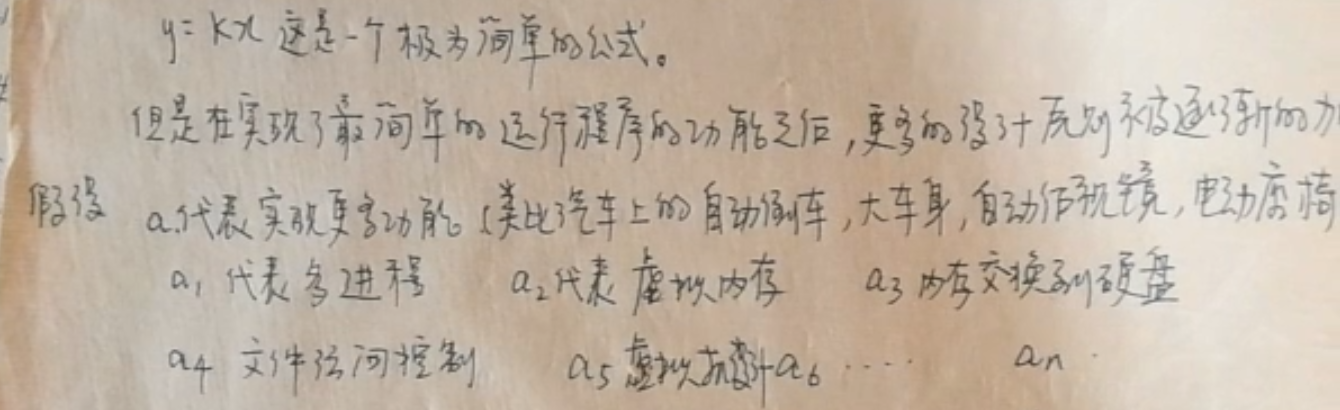 y=kx 这是一个极为简单的公式。
但是在实现了最简单的运行程序的功能之后,更多的设计原则被逐渐的加
假设 a.代表实现更多功能(类比汽车上的自动倒车,大车身,自动后视镜,电动座椅
a₁ 代表多进程 a₂代表虚拟内存 a₃ 内存交换到硬盘
a₄ 文件访问控制 a₅ 虚拟 a₆ ····· aₙ.